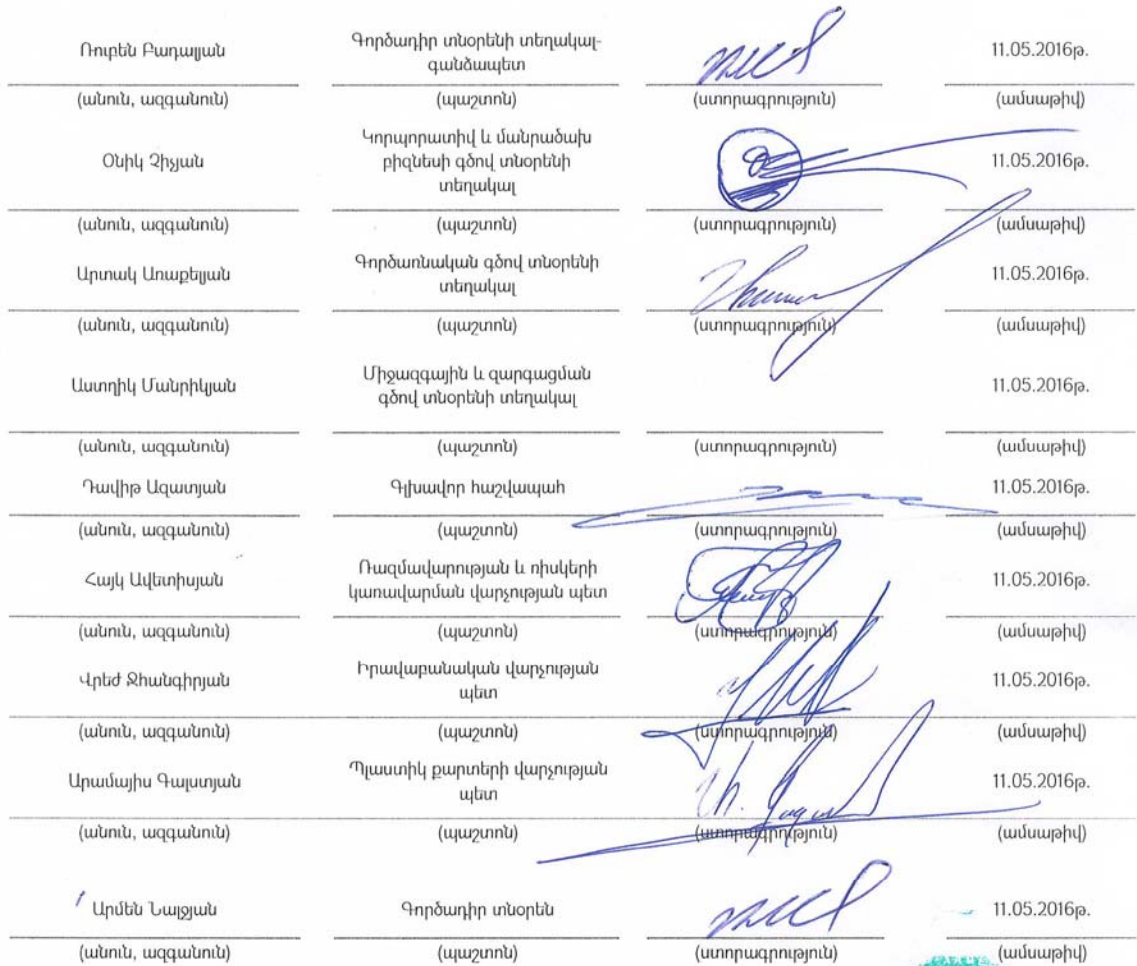 Ռուբեն Բադալյան Գործադիր տնօրենի տեղակալ- 11.05.2016թ.
գանձապետ
(անուն, ազգանուն) (պաշտոն) (ստորագրություն) (ամսաթիվ)
Օնիկ Չիչյան Կորպորատիվ և մանրածախ 11.05.2016թ.
բիզնեսի գծով տնօրենի
տեղակալ
(անուն, ազգանուն) (պաշտոն) (ստորագրություն) (ամսաթիվ)
Արտակ Առաքելյան Գործառնական գծով տնօրենի 11.05.2016թ.
տեղակալ
(անուն, ազգանուն) (պաշտոն) (ստորագրություն) (ամսաթիվ)
Աստղիկ Մանրիկյան Միջազգային և զարգացման 11.05.2016թ.
գծով տնօրենի տեղակալ
(անուն, ազգանուն) (պաշտոն) (ստորագրություն) (ամսաթիվ)
Դավիթ Ազատյան Գլխավոր հաշվապահ 11.05.2016թ.
(անուն, ազգանուն) (պաշտոն) (ստորագրություն) (ամսաթիվ)
Հայկ Ավետիսյան Ռազմավարության և ռիսկերի 11.05.2016թ.
կառավարման վարչության պետ
(անուն, ազգանուն) (պաշտոն) (ստորագրություն) (ամսաթիվ)
Վրեժ Ջհանգիրյան Իրավաբանական վարչության 11.05.2016թ.
պետ
(անուն, ազգանուն) (պաշտոն) (ստորագրություն) (ամսաթիվ)
Արամայիս Գալստյան Պլաստիկ քարտերի վարչության 11.05.2016թ.
պետ
(անուն, ազգանուն) (պաշտոն) (ստորագրություն) (ամսաթիվ)
Արմեն Նալջյան Գործադիր տնօրեն 11.05.2016թ.
(անուն, ազգանուն) (պաշտոն) (ստորագրություն) (ամսաթիվ)